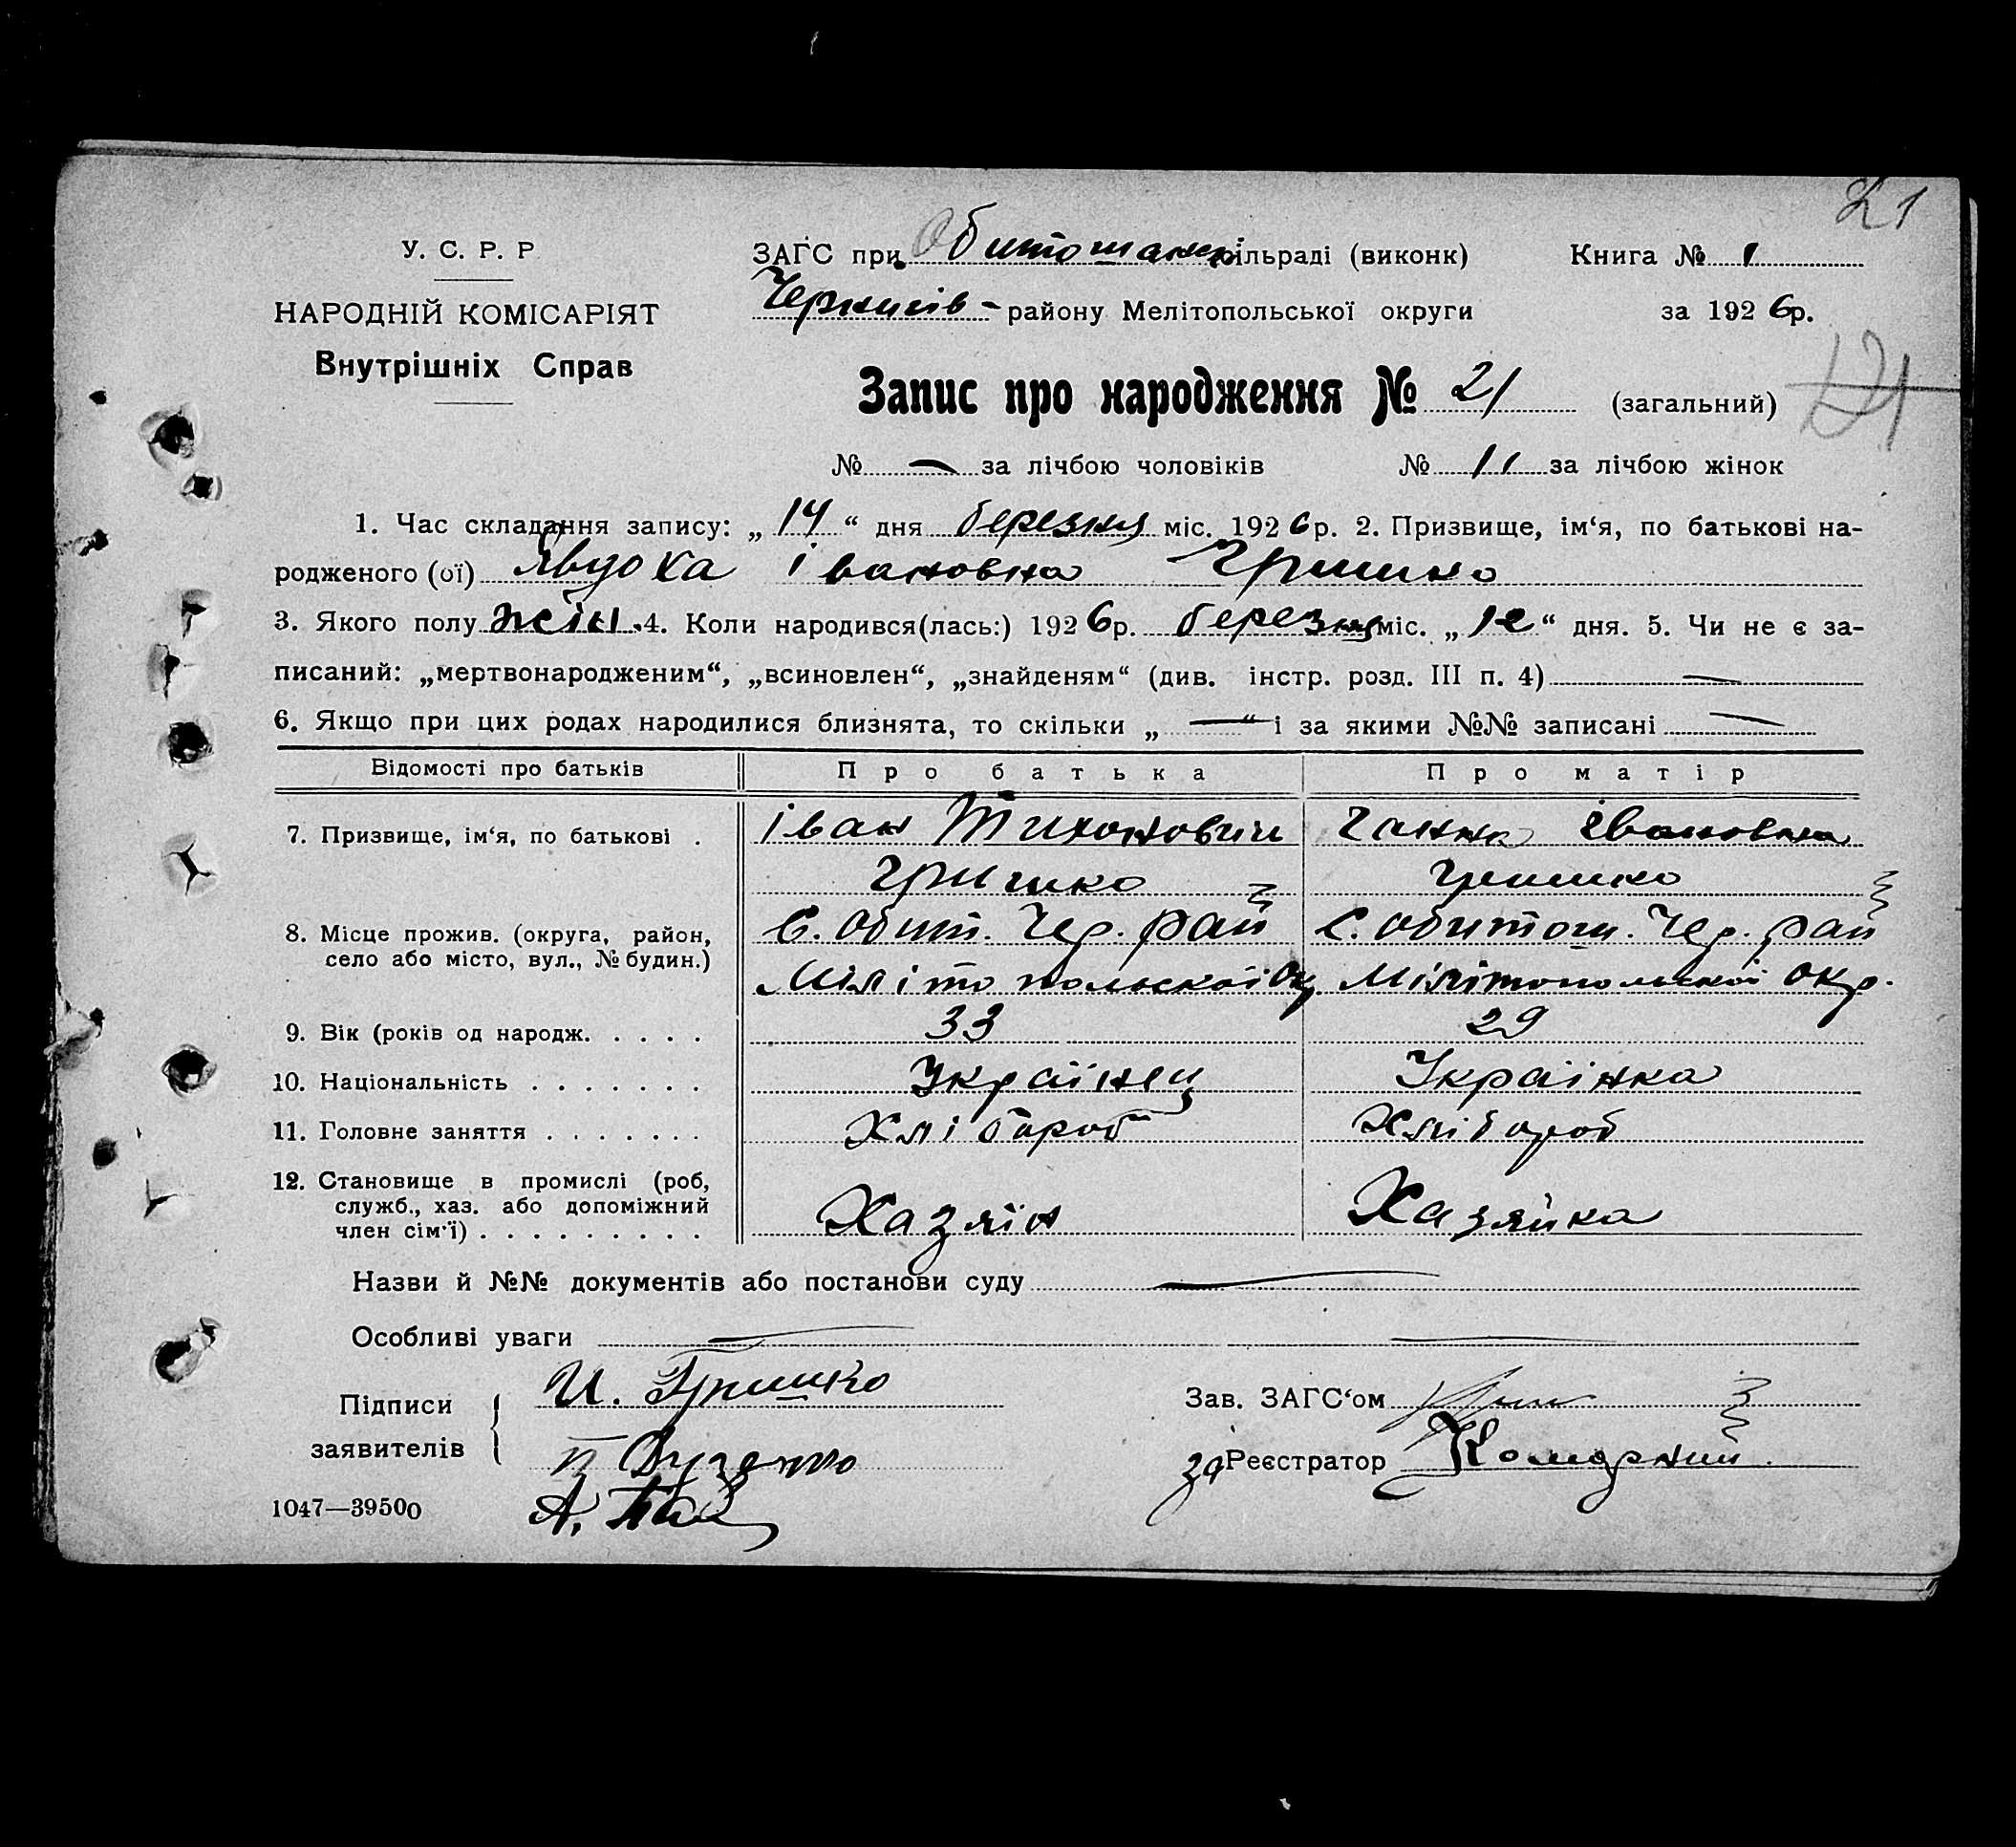 21
У. С. Р. Р
НАРОДНІЙ КОМІСАРІЯТ
Внутрішніх Справ
ЗАГС при Обитошан. сільраді (виконк) Книга № 1
Чернигів - району Мелітопольської округи за 1926р.
Запис про народження № 21 (загальний)
21
№ — за лічбою чоловіків № 11 за лічбою жінок
1. Час складання запису: „14“ дня березня міс. 1926р. 2. Призвище, ім‘я, по батькові на-
родженого (ої) Явдоха Івановна Гришко
3. Якого полу жін. 4. Коли народився(лась:) 1926р. березня міс. „12“ дня. 5. Чи не є за-
писаний: „мертвонародженим“, „всиновлен“, „знайденям“ (див. інстр. розд. III п. 4) —
6. Якщо при цих родах народилися близнята, то скільки „—“ і за якими №№ записані —
Відомості про батьків Про батька Про матір
7. Призвище, ім‘я, по батькові . Іван Тихонович Ганна Івановна
Гришко Гришко
8. Місце прожив. (округа, район, С. Обит. Чер. рай С. Обитош. Чер. рай
село або місто, вул., № будин.) Мілітопольскої Ок. Мілітопольскої Окр.
9. Вік (років од народж. . . . . 33 29
10. Національність . . . . . . . Українец Українка
11. Головне заняття . . . . . . . Хлібороб Хлібороб
12. Становище в промислі (роб,
служб., хаз. або допоміжний Хазяїн Хазяйка
член сім‘ї) . . . . . . . . .
Назви й №№ документів або постанови суду —
Особливі уваги — —
Підписи И. Гришко Зав. ЗАГС‘ом
заявителів за Реєстратор
1047—39500 А.